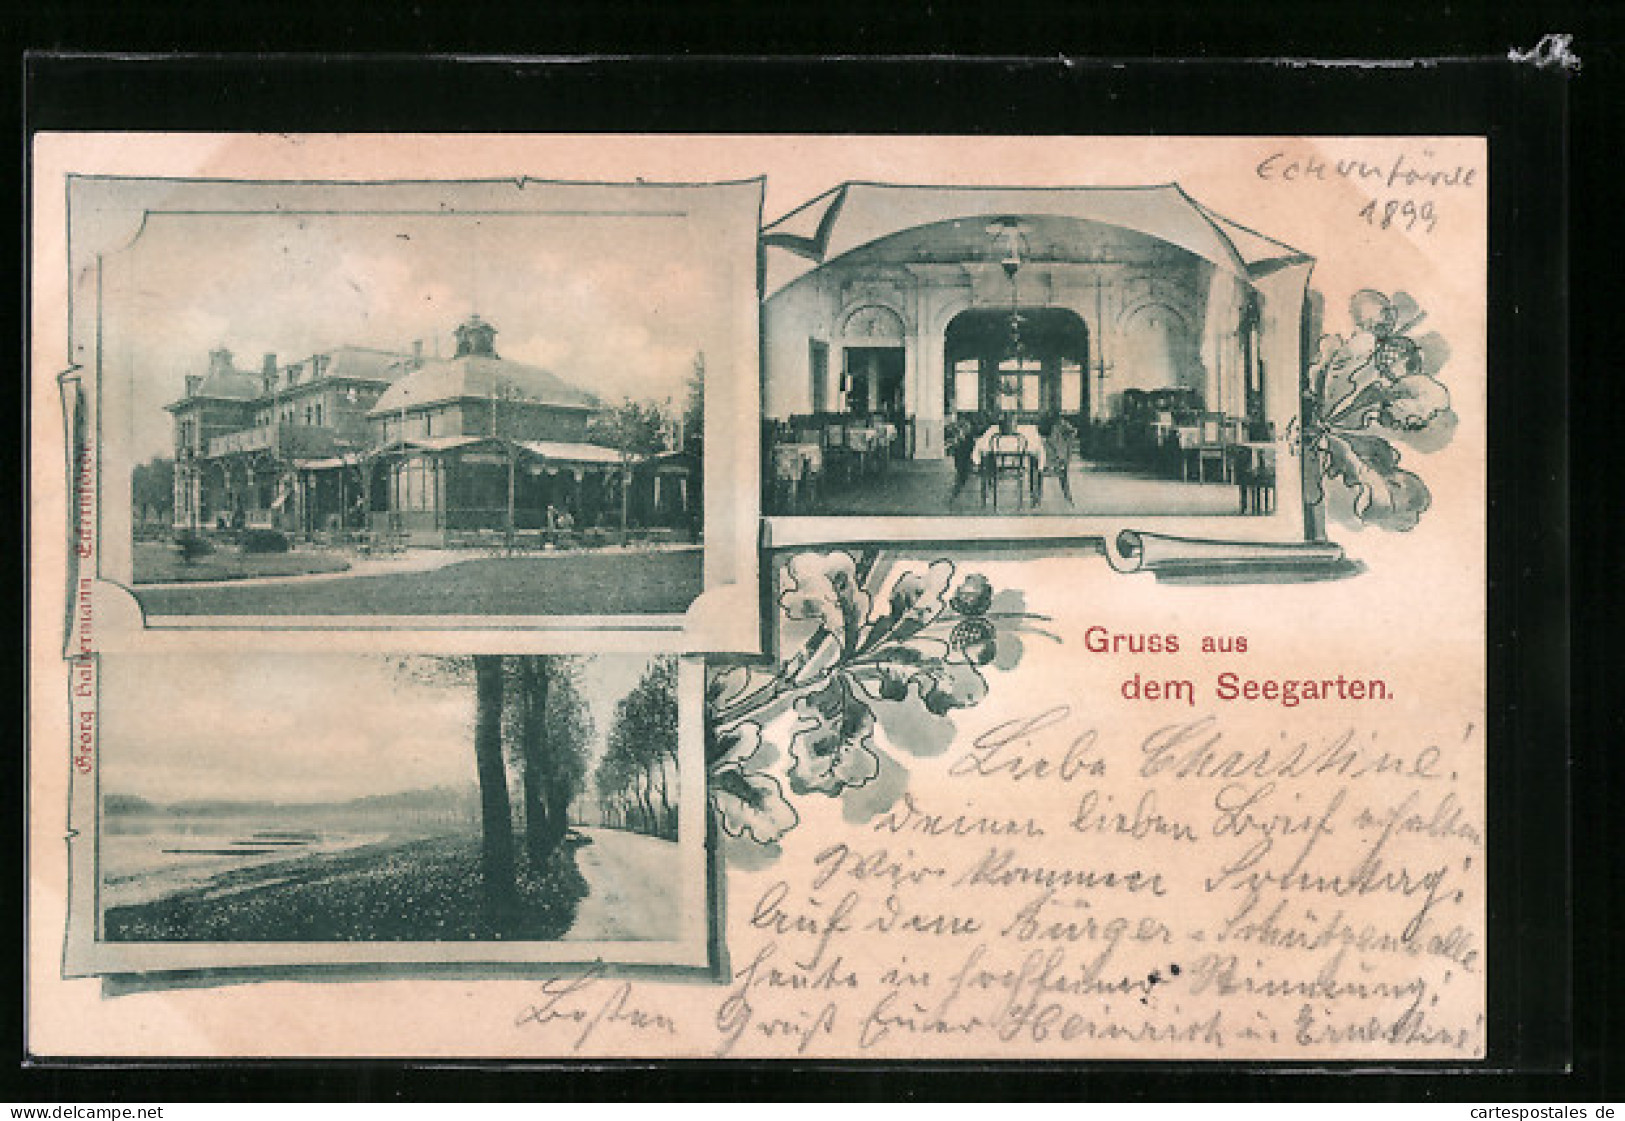 Eckernförde
1899
Georg Haltermann Eckernförde.
Gruss aus
dem Seegarten.
Liebe Christine!
Deinen lieben Brief erhalten
Wir kommen Sonntag!
Auf dem Bürger-Schützenballe
heute in hochfeiner Stimmung!
Besten Gruß Euer Heinrich u. Ernestine!
delcampe.net
cartespostales de